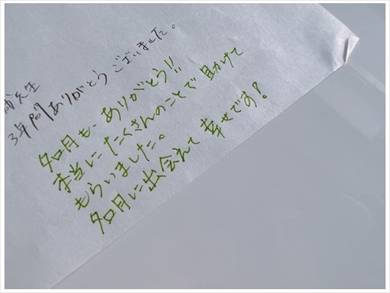 先生
3年間ありがとうございました。
名月も、ありがとう!!
本当にたくさんのことで助けて
もらいました。
名月に出会えて幸せです!